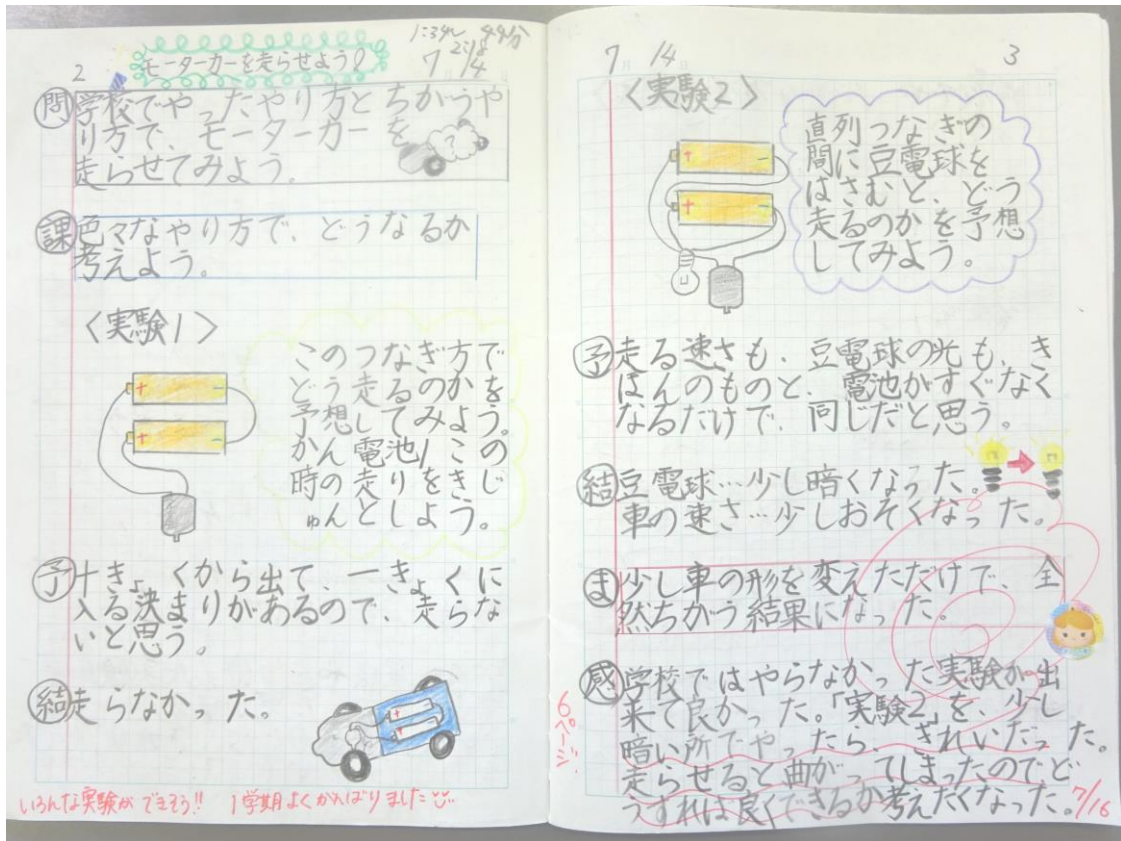 1:34〜 44分
2:18
モーターカーを走らせよう!
2
7 14
問 学校でやったやり方とちがうや
り方で、モーターカーを
走らせてみよう。
課 色々なやり方で、どうなるか
考えよう。
〈実験1〉
このつなぎ方で
どう走るのかを
予想してみよう。
かん電池1この
時の走りをきじ
ゅんとしよう。
+ -
+ -
予 +きょくから出て、-きょくに
入る決まりがあるので、走らな
いと思う。
結 走らなかった。
いろんな実験ができそう!! 1学期よくがんばりました
7 14
3
〈実験2〉
+ -
+ -
直列つなぎの
間に豆電球を
はさむと、どう
走るのかを予想
してみよう。
予 走る速さも、豆電球の光も、き
ほんのものと、電池がすぐなく
なるだけで、同じだと思う。
結 豆電球…少し暗くなった。
車の速さ…少しおそくなった。
ま 少し車の形を変えただけで、全
然ちがう結果になった。
感 学校ではやらなかった実験が出
来て良かった。「実験2」を、少し
暗い所でやったら、きれいだった。
走らせると曲がってしまったので、ど
うすれば良くできるか考えたくなった。
6ページ
7/16